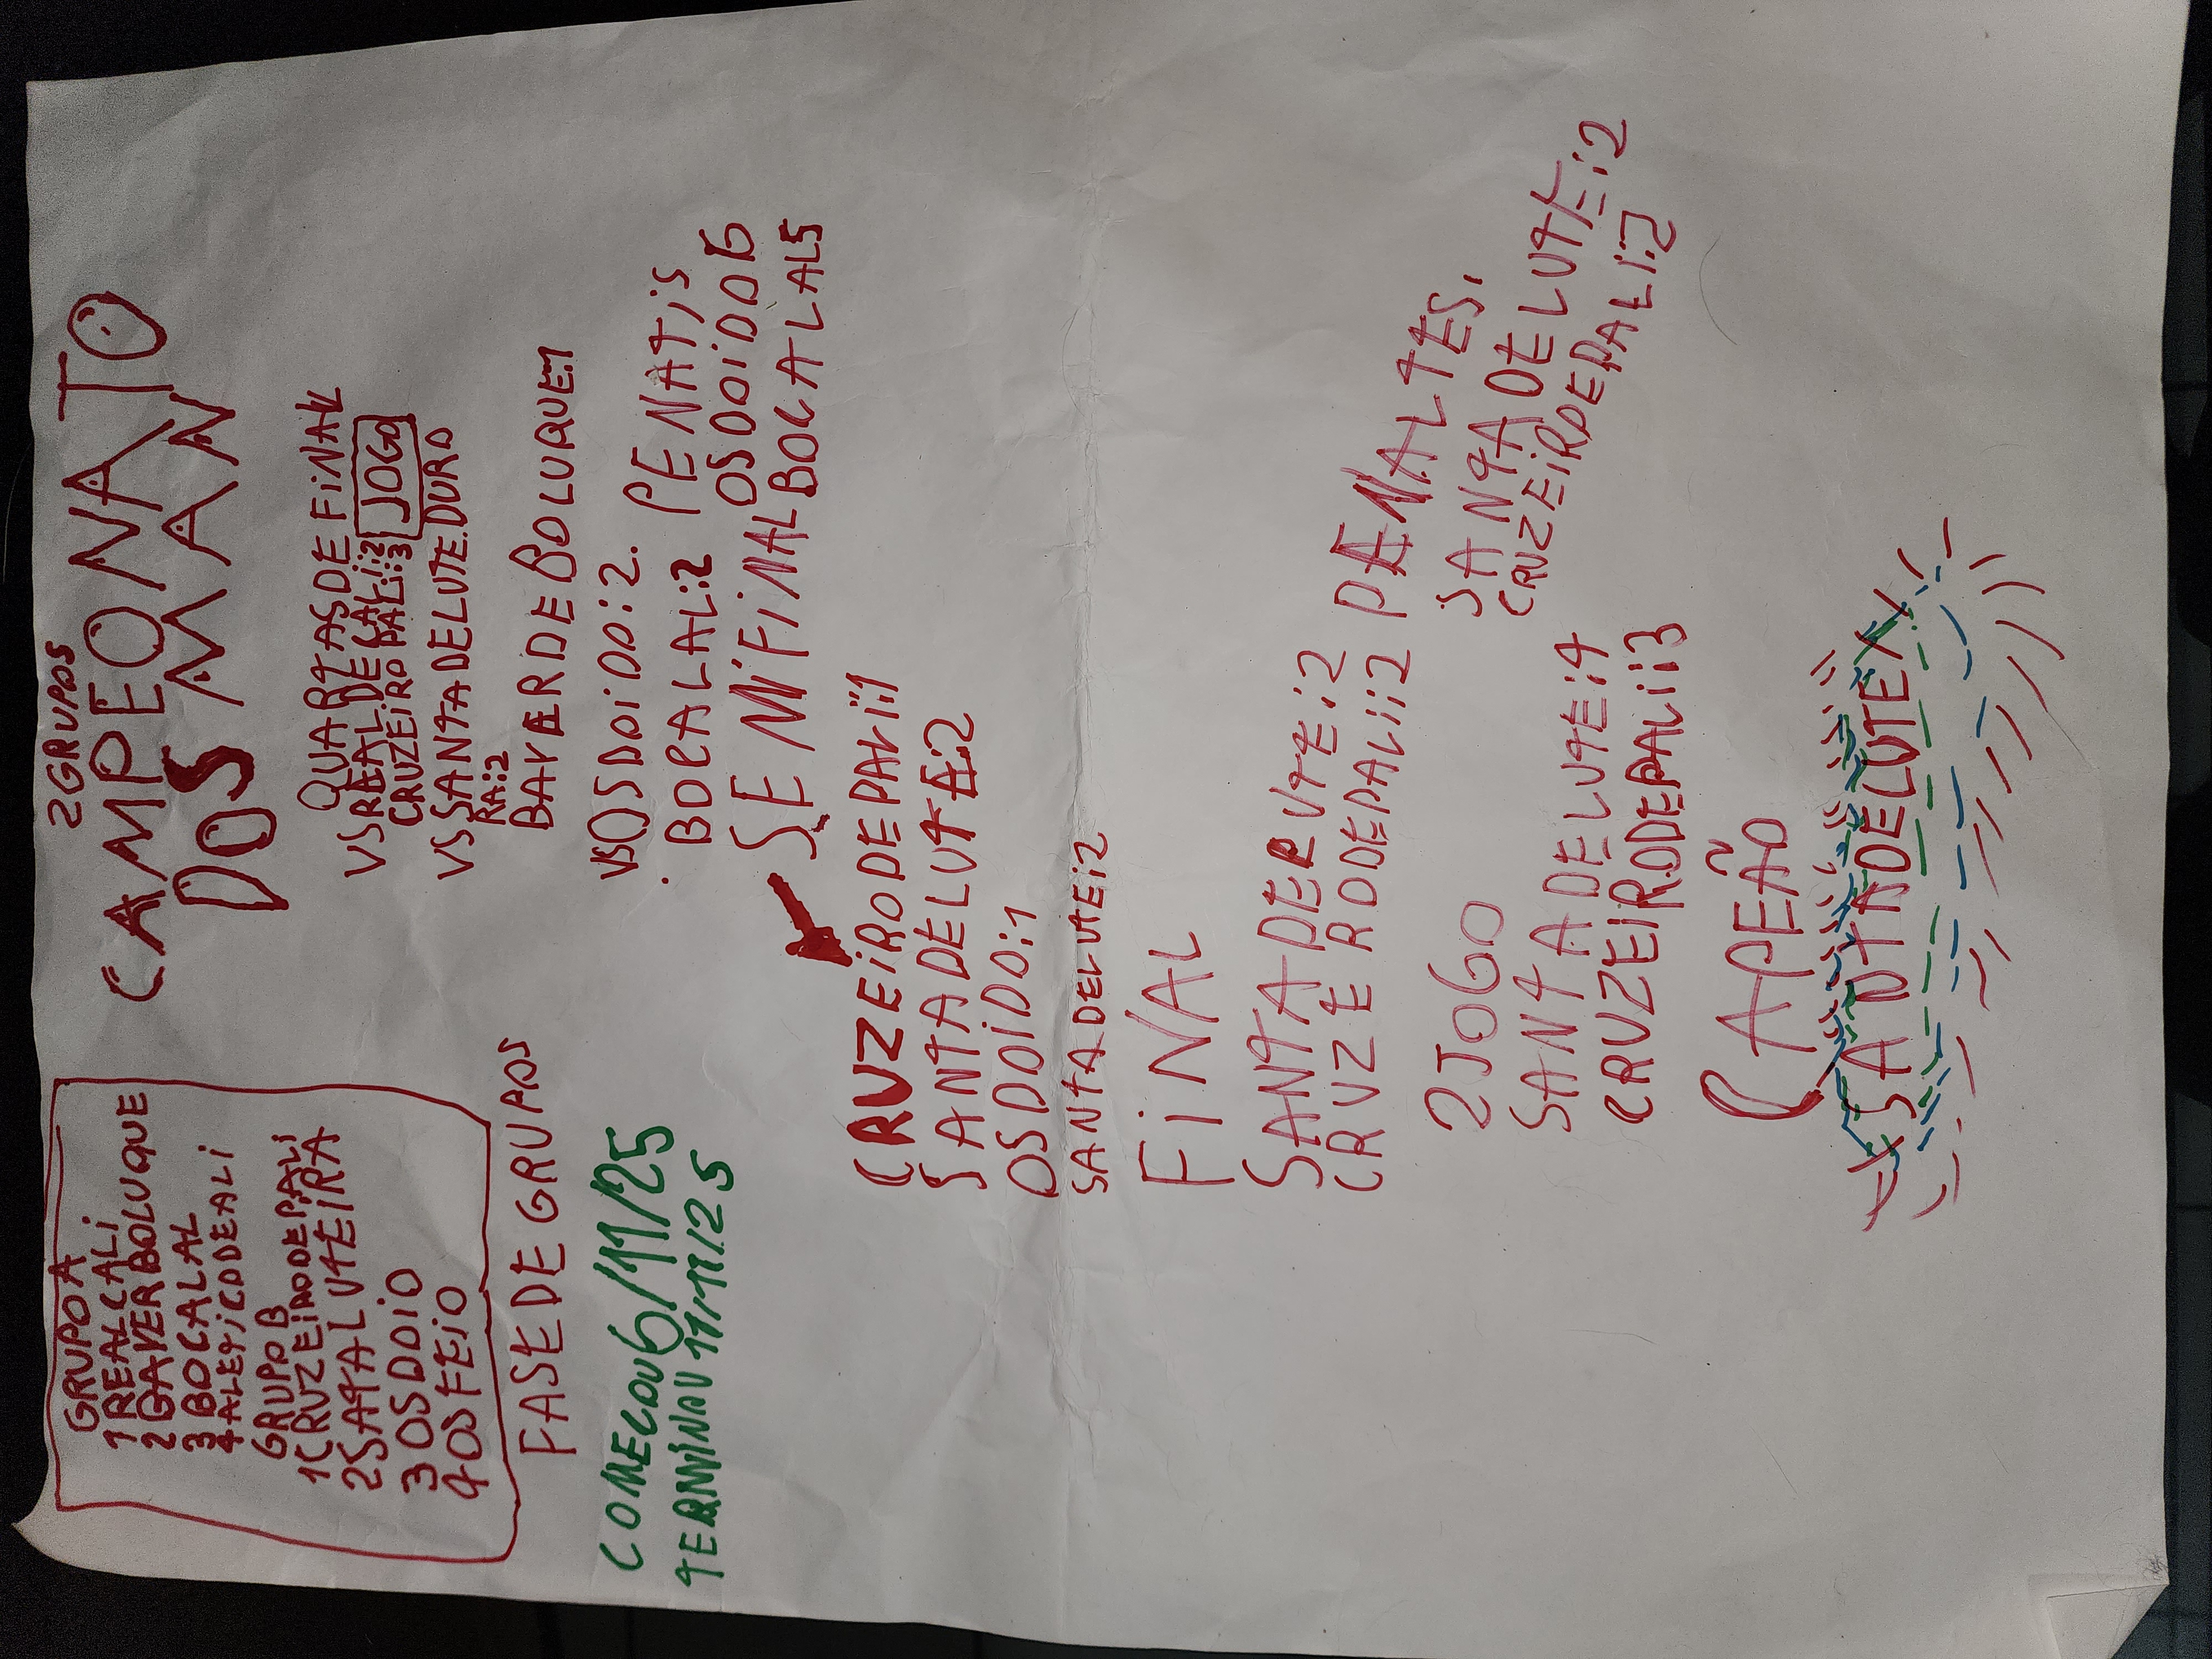 2 GRUPOS
CAMPEONATO
DOS MAAN
GRUPO A
1 REAL CALI
2 GAVERBOLUQUE
3 BOCALAL
4 ALETICODEALI
GRUPO B
1 CRUZEIRODEPALI
2 SATALUTEIRA
3 OSDDIO
4 OS FEIO
FASE DE GRUPOS
COMECOU 6/11/25
TERMINOU 11/11/25
QUARTAS DE FINAL
VS REAL DE CALI:2
CRUZEIRO PALI:3 JOGO
VS SANTA DE LUTE.DURO
RA:2
BAVERDEBOLUQUE:1
VSOSDOIDO:2.
BOCALAL:2 PENATIS
OSDOIDO 6
BOCALAL 5
SEMIFINAL
CRUZEIRODEPALI:1
SANTADELUTE:2
OSDOIDO:1
SANTADELUTE:2
FINAL
SANTADELUTE:2
CRUZERODEPALI:2 PENALTES.
SANTA DE LUTE:2
CRUZEIRDEPALI:2
2 JOGO
SANTA DELUTE:4
CRUZEIRODEPALI:3
CAPEÃO
SANTADELUTE